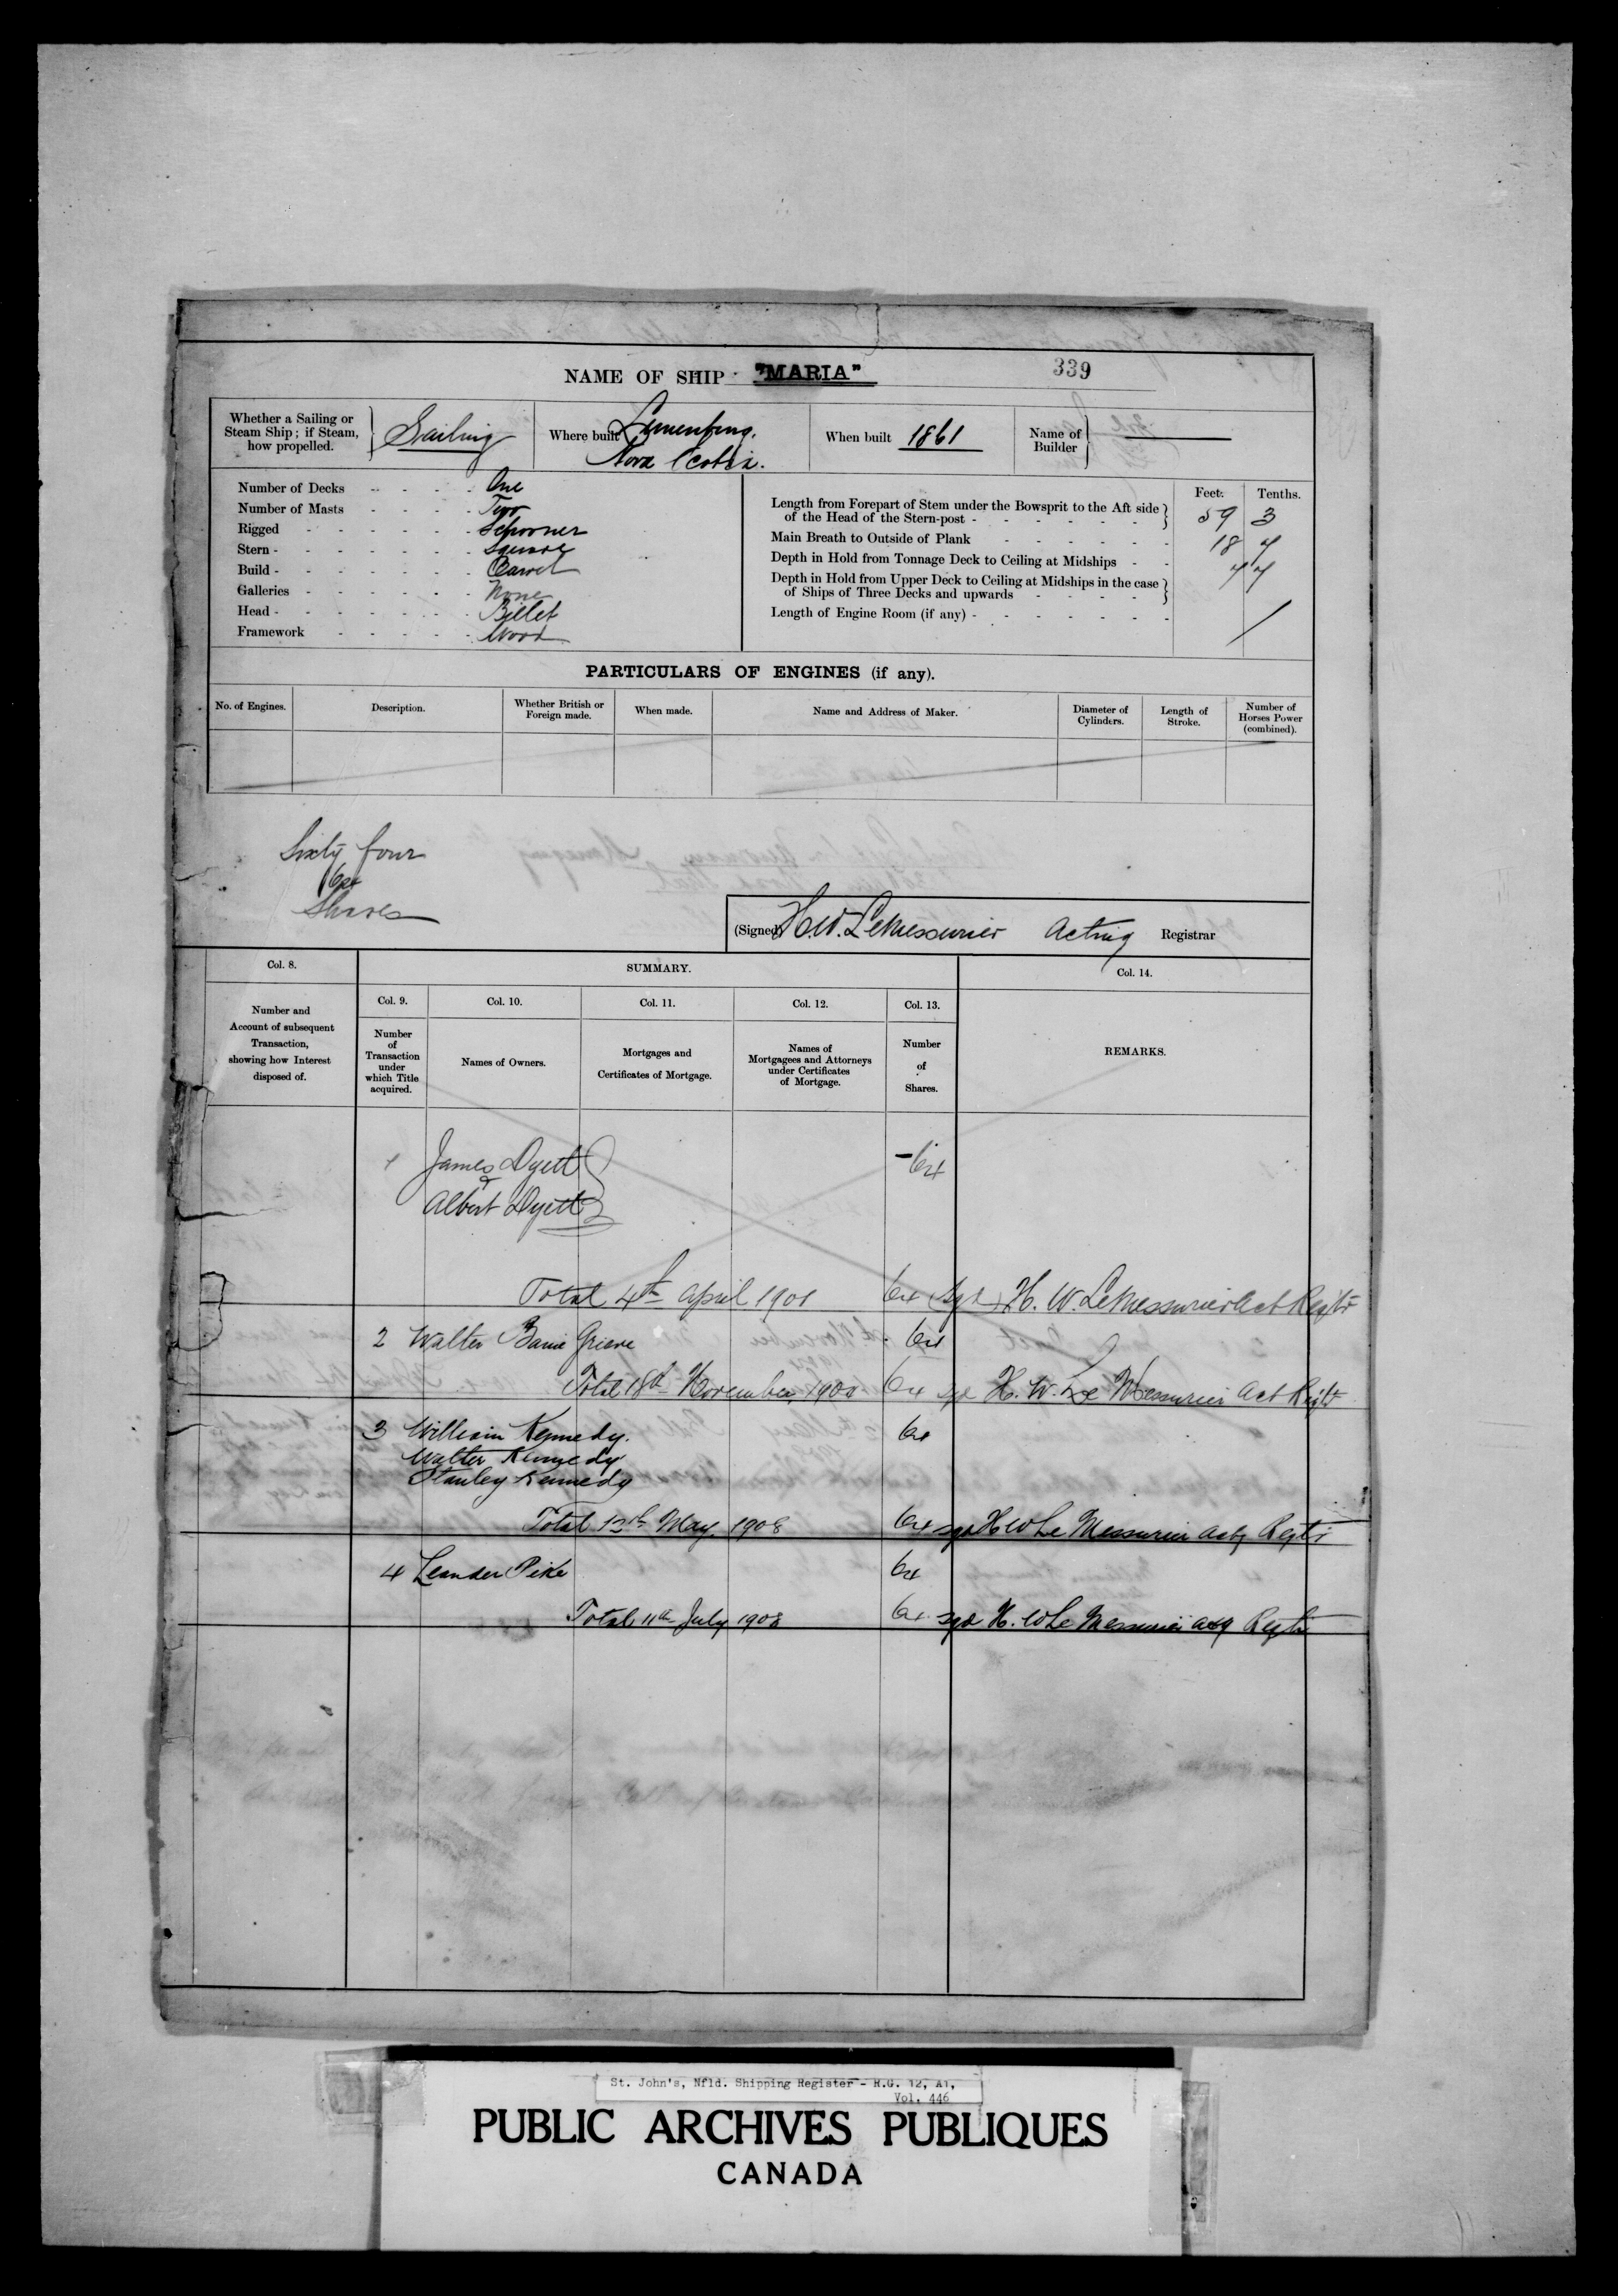 NAME OF SHIP "MARIA" 339
Whether a Sailing or Steam Ship; if Steam, how propelled. Sailing
Where built Lunenburg, Nova Scotia.
When built 1861
Name of Builder
Number of Decks One
Number of Masts Two
Rigged Schooner
Stern Square
Build Carvel
Galleries None
Head Billet
Framework Wood
Feet. Tenths.
Length from Forepart of Stem under the Bowsprit to the Aft side
of the Head of the Stern-post 59 3
Main Breath to Outside of Plank 18 4
Depth in Hold from Tonnage Deck to Ceiling at Midships
Depth in Hold from Upper Deck to Ceiling at Midships in the case
of Ships of Three Decks and upwards
Length of Engine Room (if any)
PARTICULARS OF ENGINES (if any).
No. of Engines.
Description.
Whether British or Foreign made.
When made.
Name and Address of Maker.
Diameter of Cylinders.
Length of Stroke.
Number of Horses Power (combined).
Sixty four
64
Shares
(Signed) H.W. LeMessurier Acting Registrar
Col. 8.
SUMMARY.
Col. 14.
Number and Account of subsequent Transaction, showing how Interest disposed of.
Col. 9.
Col. 10.
Col. 11.
Col. 12.
Col. 13.
Number of Transaction under which Title acquired.
Names of Owners.
Mortgages and Certificates of Mortgage.
Names of Mortgagees and Attorneys under Certificates of Mortgage.
Number of Shares.
REMARKS.
1 James Dyett 64
&
Albert Dyett
Total 4th April 1901 64 (Sgd) H. W. LeMessurier Act Regtr
2 Walter Baine Grieve 64
Total 18th November 64 sgd H. W. Le Messurier Act Regtr
3 William Kennedy. 64
Walter Kennedy
Stanley Kennedy
Total May 1908 64 sgd H W Le Messurier Actg Regtr
4 Leander Pike 64
Total 11th July 1908 64 sgd H. W Le Messurier actg Regtr
St. John's, Nfld. Shipping Register - R.G. 12, A1,
Vol. 446
PUBLIC ARCHIVES PUBLIQUES
CANADA